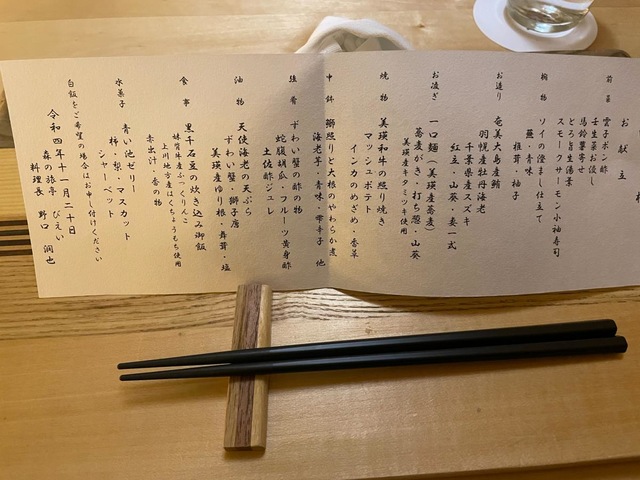 お献立
前菜
雲子ポン酢
壬生菜お浸し
馬鈴薯寄せ
とろ旨生湯葉
スモークサーモン小袖寿司
椀物
ソイの澄まし仕立て
蕪・青味
椎茸・柚子
お造り
奄美大島産鮪
羽幌産牡丹海老
千葉県産スズキ
紅立・山葵・妻一式
お凌ぎ
一口麺(美瑛産蕎麦)
蕎麦がき・打ち葱・山葵
美瑛産キタミツキ使用
焼物
美瑛和牛の照り焼き
マッシュポテト
インカのめざめ・香草
中鉢
鰤照りと大根のやわらか煮
海老芋・青味・雫辛子 他
強肴
ずわい蟹の酢の物
蛇腹胡瓜・フルーツ黄身酢
土佐酢ジュレ
油物
天使海老の天ぷら
ずわい蟹・獅子唐
美瑛産ゆり根・舞茸・塩
食事
黒千石豆の炊き込み御飯
上川地方産はくちょうもち使用
赤出汁・香の物
水菓子
青い池ゼリー
柿・梨・マスカット
シャーベット
白飯をご希望の場合はお申し付けください
令和四年十一月二十日
森の旅亭 びえい
料理長 野口